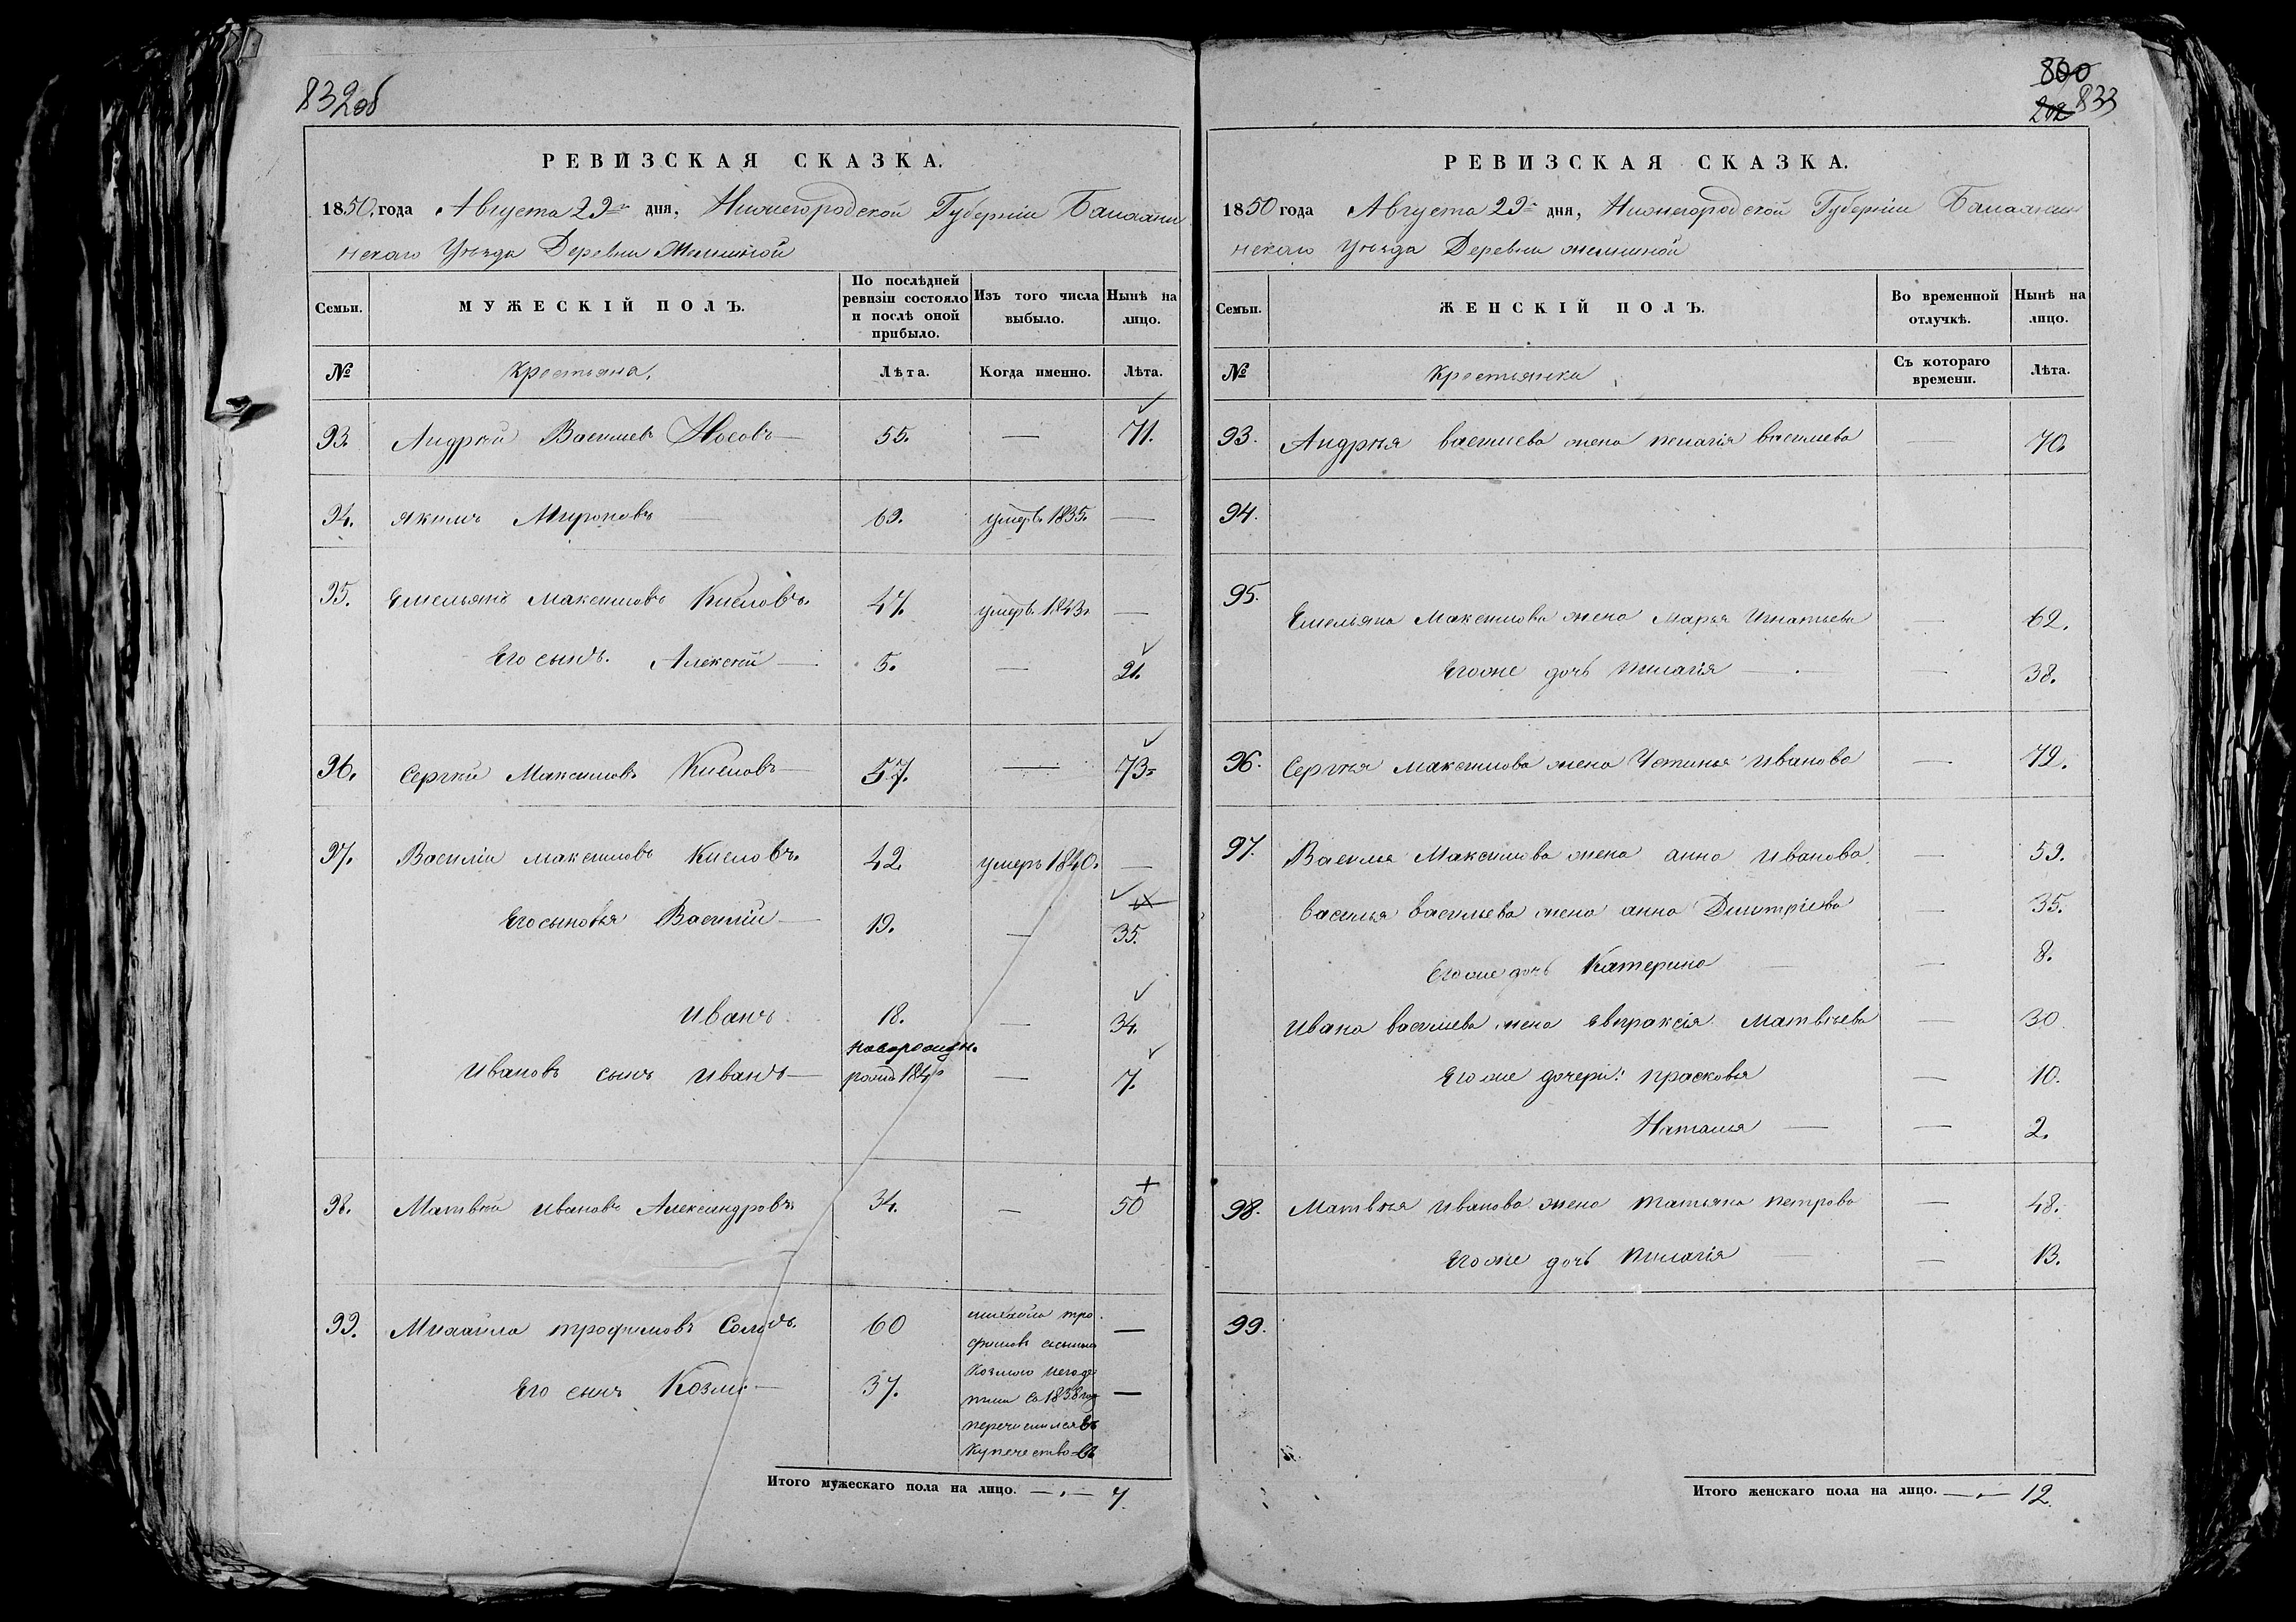 832об
РЕВИЗСКАЯ СКАЗКА.
1850 года Августа 29 дня, Нижегородской Губерніи Балахни
нскаго Уѣзда Деревни
Семьи.
МУЖЕСКІЙ ПОЛЪ.
По послѣдней ревизіи состояло и послѣ оной прибыло.
Изъ того числа выбыло.
Нынѣ на лицо.
№
Крестьяна.
Лѣта.
Когда именно.
Лѣта.
93. Андрѣй Васильевъ Носовъ — 55. — 71.
94. Якимъ Мироновъ — 69. умеръ 1835. —
95. Емельянъ Максимовъ Киселовъ. 47. умеръ 1843. —
Его сынъ. Алексѣй — 5. — 21.
96. Сергѣй Максимовъ Киселовъ — 57. — 73.
97. Василій Максимовъ Киселовъ. 42. умеръ 1840. —
Его сыновья Василій — 19. — 35.
Иванъ 18. — 34.
новорожден.
Ивановъ сынъ Иванъ — — 7.
98. Матвѣй Ивановъ Александровъ 34. — 50
99. Михаила Трофимовъ 60 Михайла Тро —
фимовъ сыномъ
Его сынъ Козма — 37. Козмою —
съ 1838 год
перечислился въ
купечество
Итого мужескаго пола на лицо. — 7.
800
202 833
РЕВИЗСКАЯ СКАЗКА.
1850 года Августа 29 дня, Нижегородской Губерніи Балахни
нскаго Уѣзда Деревни
Семьи.
ЖЕНСКІЙ ПОЛЪ.
Во временной отлучкѣ.
Нынѣ на лицо.
№
Крестьянки
Съ котораго времени.
Лѣта.
93. Андрѣя Васильева жена Пелагія Васильева — 70.
94.
95.
Емельяна Максимова жена Марья Игнатьева — 62.
Его же дочь Пелагія — — 38.
96. Сергѣя Максимова жена Устинья Иванова — 72.
97. Василья Максимова жена Анна Иванова. — 59.
Василья Васильева жена Анна Дмитріева — 35.
Его же дочь Катерина — — 8.
Ивана Васильева жена Евпраксія Матвѣева — 30
Его же дочери: Прасковья — 10.
Наталья — — 2.
98. Матвѣя Иванова жена Татьяна Петрова — 48.
Его же дочь Пелагія — — 13.
99.
Итого женскаго пола на лицо. — 12.